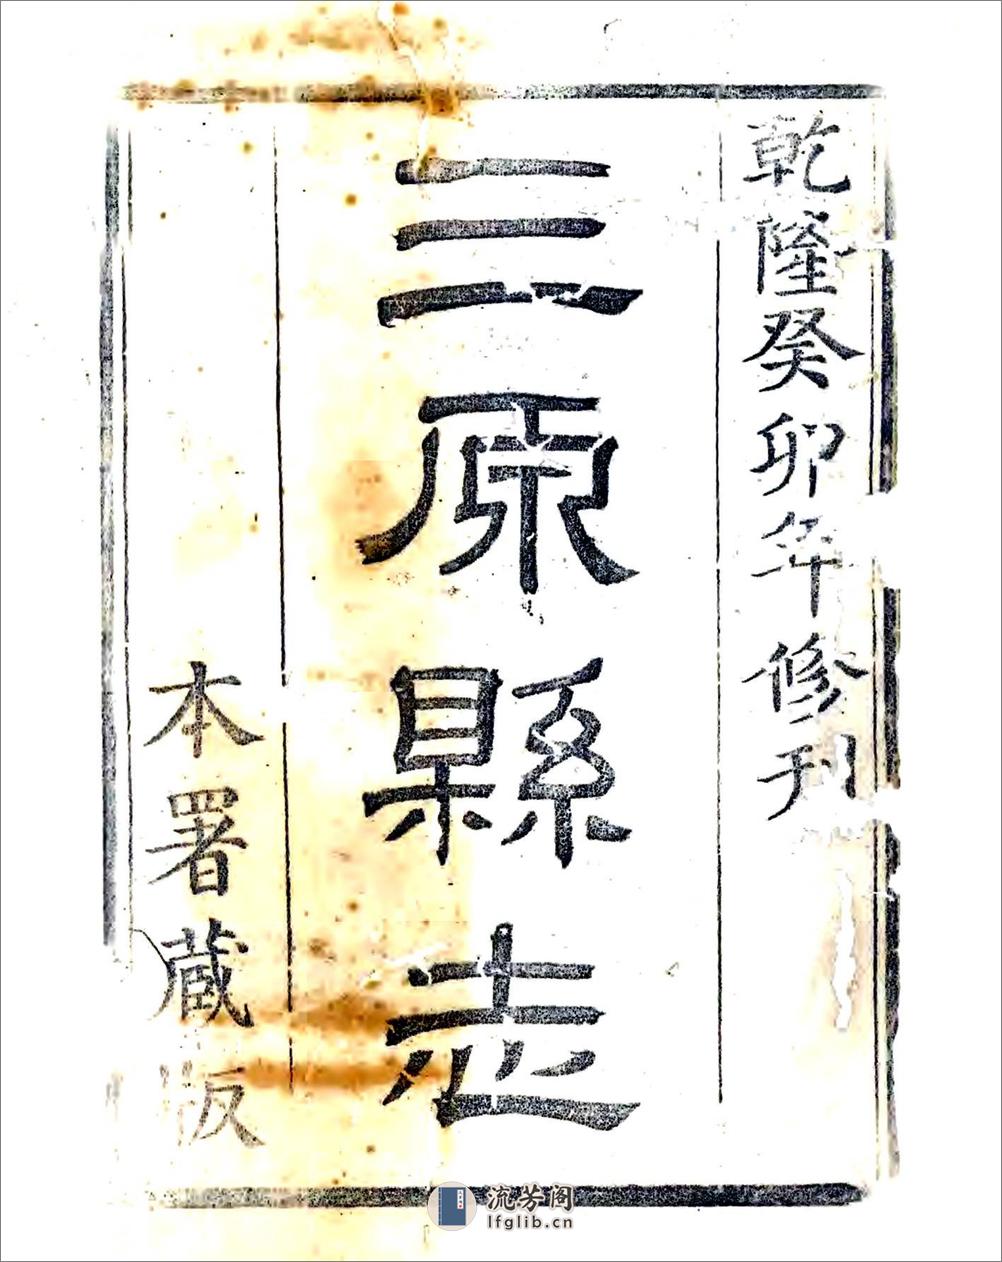 乾隆癸卯年修刊
三原縣志
本署藏版
流芳阁
lfglib.cn